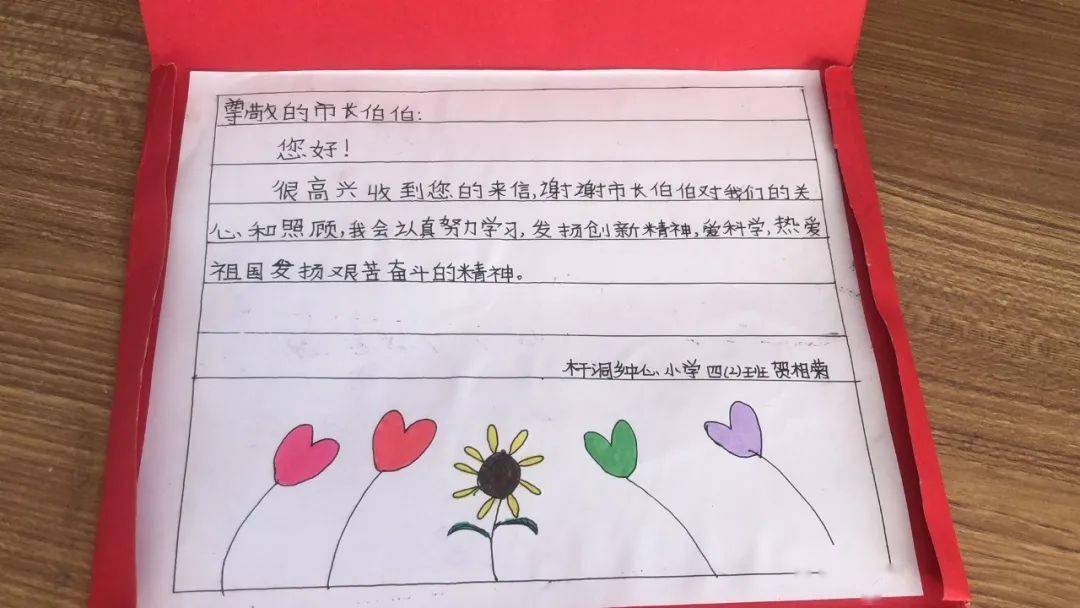 尊敬的市长伯伯:
您好!
很高兴收到您的来信,谢谢市长伯伯对我们的关
心和照顾,我会认真努力学习,发扬创新精神,爱科学,热爱
祖国发扬艰苦奋斗的精神。
杆洞乡中心小学四(2)班 贺相菊